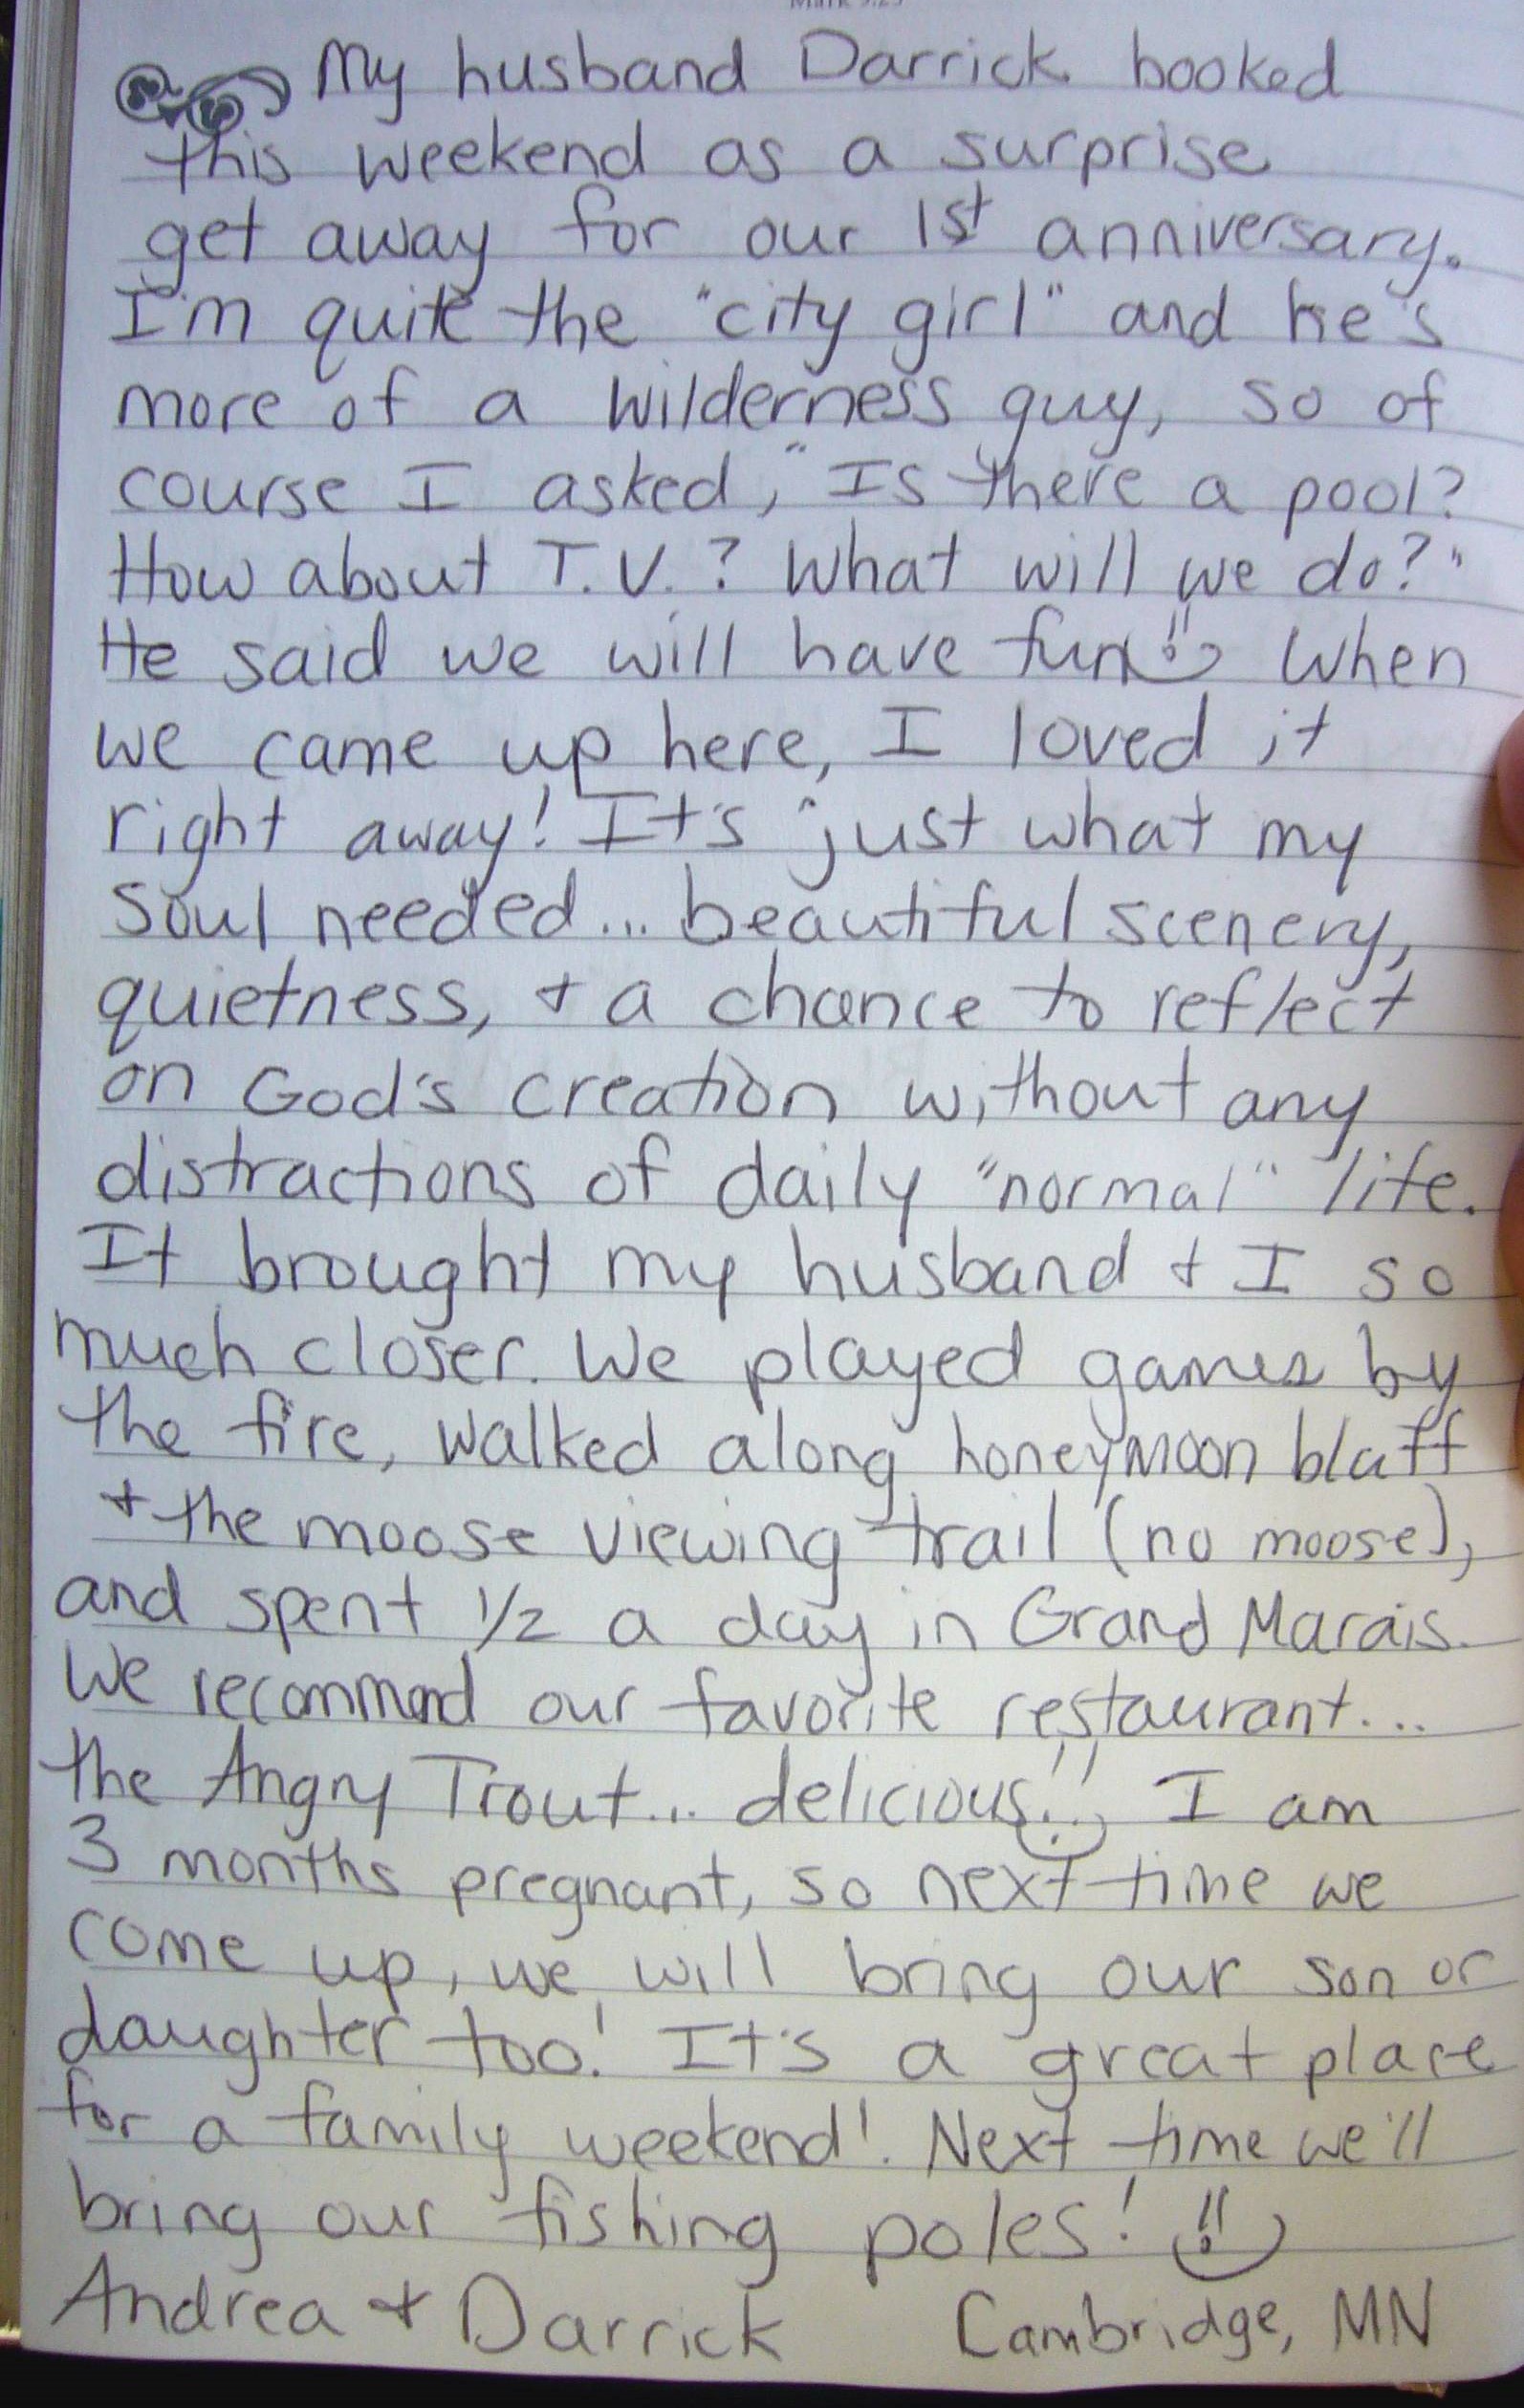 My husband Darrick booked
this weekend as a surprise
get away for our 1st anniversary.
I'm quite the "city girl" and he's
more of a wilderness guy, so of
course I asked, "Is there a pool?
How about T.V.? What will we do?"
He said we will have fun When
we came up here, I loved it
right away! It's just what my
soul needed... beautiful scenery,
quietness, + a chance to reflect
on God's creation without any
distractions of daily "normal" life.
It brought my husband + I so
much closer. We played games by
the fire, walked along honeymoon bluff
+ the moose viewing trail (no moose),
and spent 1/2 a day in Grand Marais.
We recommend our favorite restaurant...
the Angry Trout... delicious!! I am
3 months pregnant, so next time we
come up, we will bring our son or
daughter too! It's a great place
for a family weekend! Next time we'll
bring our fishing poles!
Andrea + Darrick Cambridge, MN